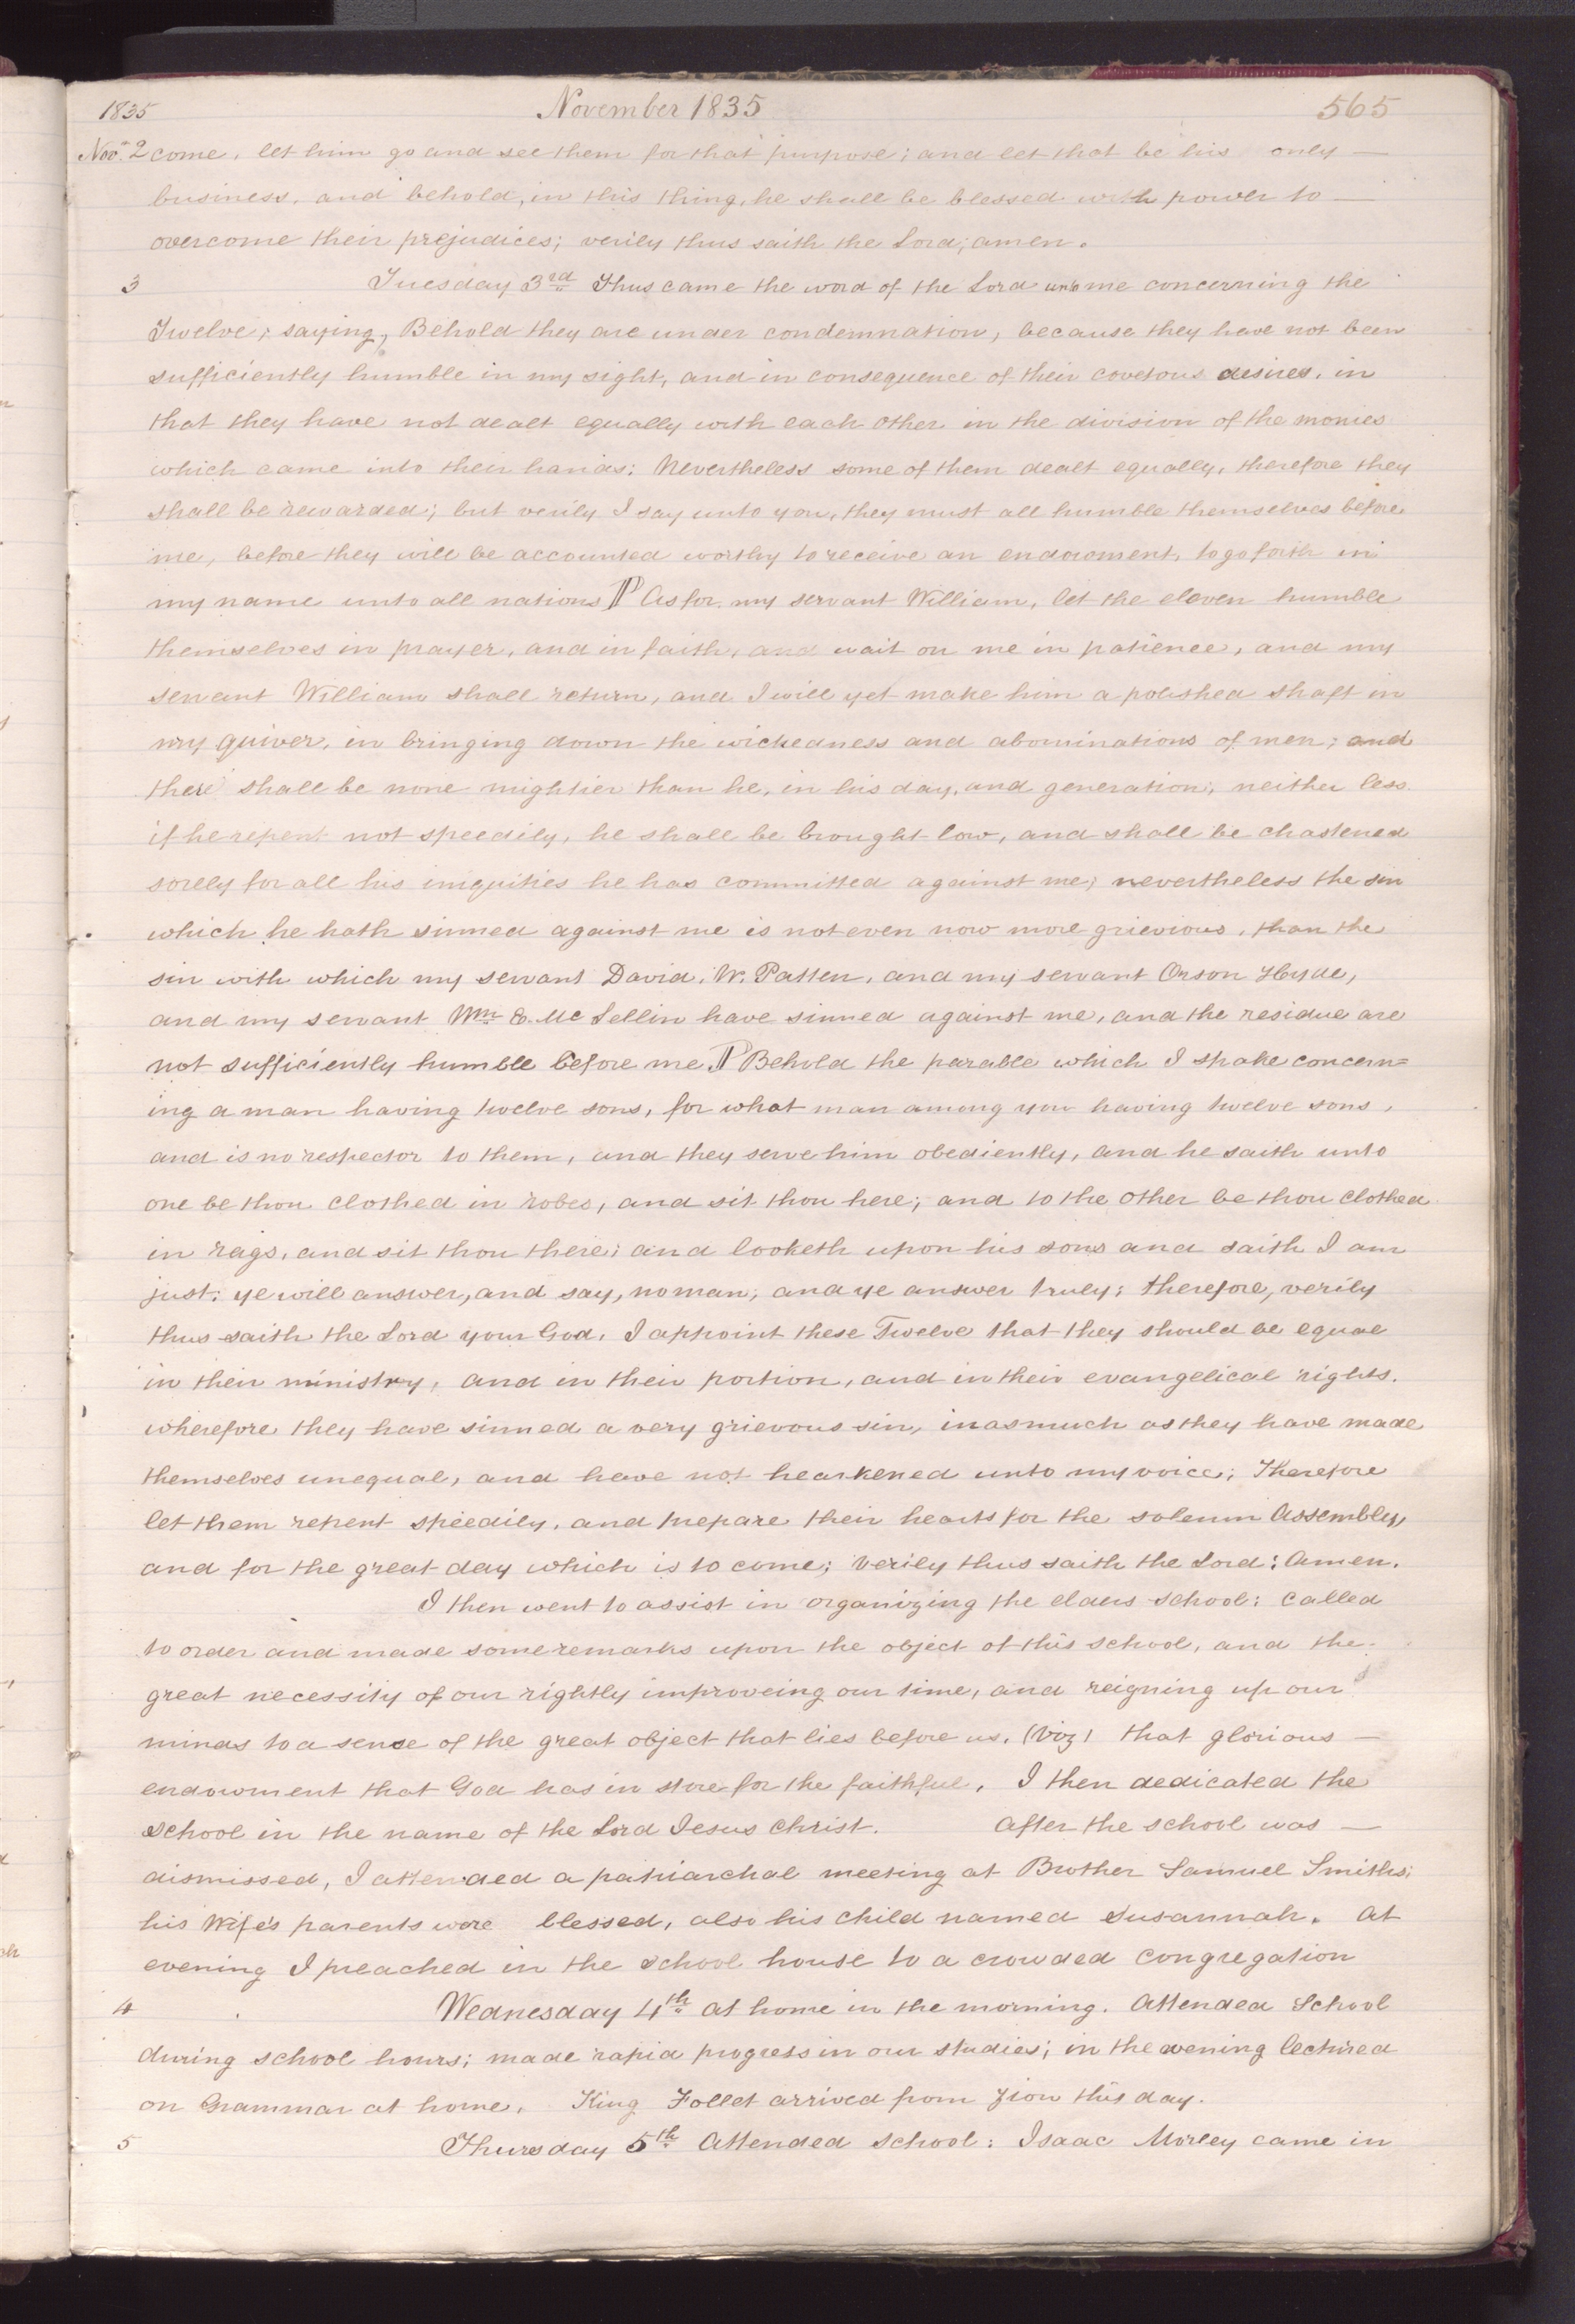 1835 November 1835 565
Nov. 2 come, let him go and see them for that purpose; and let that be his only —
business, and behold, in this thing, he shall be blessed with power to —
overcome their prejudices; verily thus saith the Lord; amen.
3 Tuesday 3rd Thus came the word of the Lord unto me concerning the
Twelve; saying, Behold they are under condemnation, because they have not been
sufficiently humble in my sight, and in consequence of their covetous desires, in
that they have not dealt equally with each other in the division of the monies
which came into their hands: Nevertheless some of them dealt equally, therefore they
shall be rewarded; but verily I say unto you, they must all humble themselves before
me, before they will be accounted worthy to receive an endowment, to go forth in
my name unto all nations ¶ As for my servant William, let the eleven humble
themselves in prayer, and in faith, and wait on me in patience, and my
servant William shall return, and I will yet make him a polished shaft in
my quiver, in bringing down the wickedness and abominations of men; and
there shall be none mightier than he, in his day, and generation; neither less
if he repent not speedily, he shall be brought low, and shall be chastened
sorely for all his iniquities he has committed against me; nevertheless the sin
which he hath sinned against me is not even now more grievious, than the
sin with which my servant David. W. Patten, and my servant Orson Hyde,
and my servant Wm E. Mc Lellin have sinned against me, and the residue are
not sufficiently humble before me ¶ Behold the parable which I spake concern=
ing a man having twelve sons, for what man among you having twelve sons,
and is no respector to them, and they serve him obediently, and he saith unto
one be thou clothed in robes, and sit thou here; and to the other be thou clothed
in rags, and sit thou there; and looketh upon his sons and saith I am
just; ye will answer, and say, no man; and ye answer truly; therefore, verily
thus saith the Lord your God, I appoint these Twelve that they should be equal
in their ministry, and in their portion, and in their evangelical rights.
wherefore they have sinned a very grievous sin, inasmuch as they have made
themselves unequal, and have not hearkened unto my voice; Therefore
let them repent speedily, and prepare their hearts for the solemn Assembly,
and for the great day which is to come; verily thus saith the Lord; Amen.
I then went to assist in organizing the elders school: called
to order and made some remarks upon the object of this school, and the
great necessity of our rightly improveing our time, and reigning up our
minds to a sense of the great object that lies before us, (viz) that glorious —
endowment that God has in store for the faithful. I then dedicated the
school in the name of the Lord Jesus Christ. after the school was —
dismissed, I attended a patriarchal meeting at Brother Samuel Smiths;
his Wife's parents were blessed, also his child named Susannah. At
evening I preached in the school house to a crowded congregation
4 Wednesday 4th at home in the morning. Attended School
during school hours; made rapid progress in our studies; in the evening lectured
on Grammar at home. King Follet arrived from Zion this day.
5 Thursday 5th Attended school: Isaac Morley came in